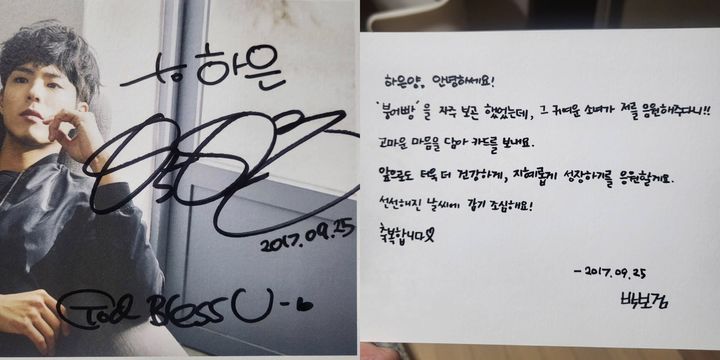 to 하은
2017.09.25
God Bless U-
하은양, 안녕하세요!
'붕어빵'을 자주 보곤 했었는데, 그 귀여운 소녀가 저를 응원해주다니!!
고마운 마음을 담아 카드를 보내요.
앞으로도 더욱 더 건강하게, 지혜롭게 성장하기를 응원할게요.
선선해진 날씨에 감기 조심해요!
축복합니다♡
-2017.09.25
박보검